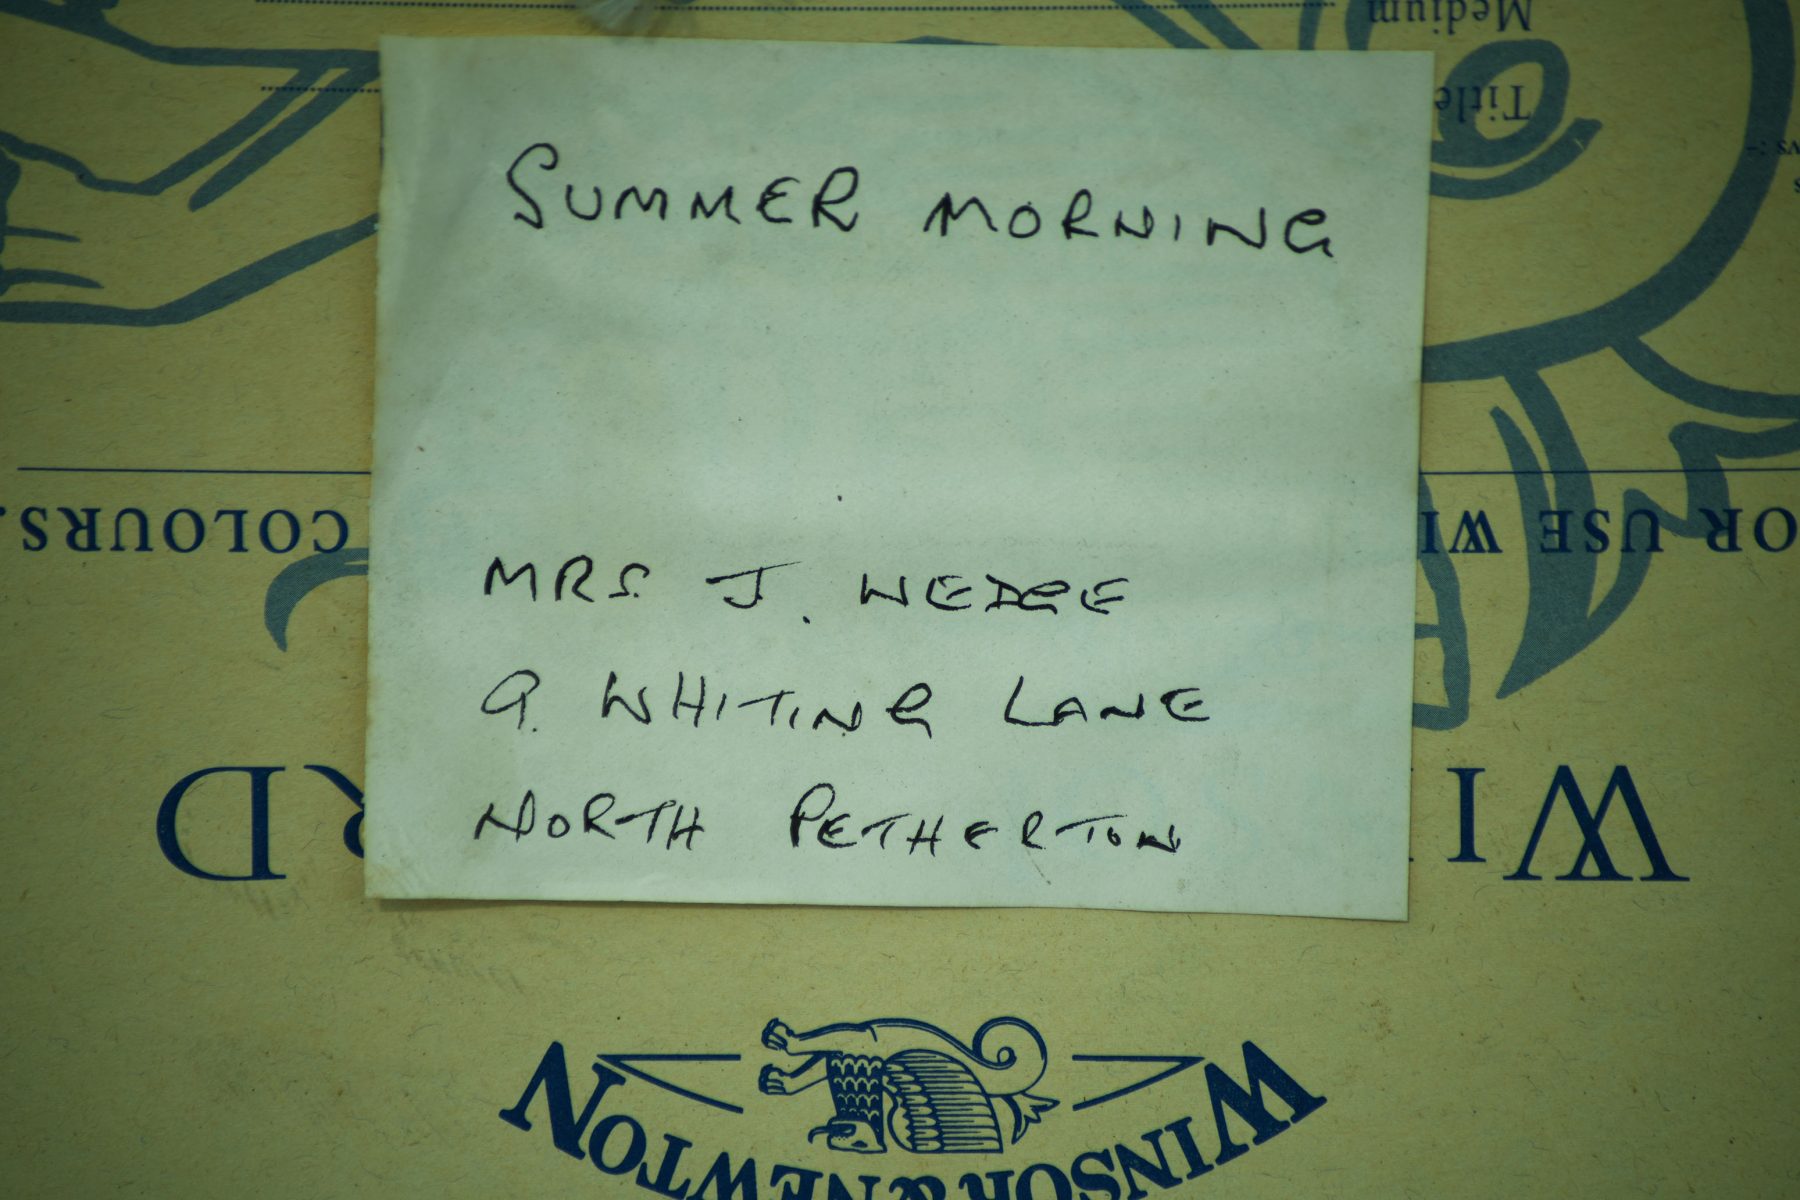 SUMMER MORNING
MRS. J. WEDGE
9. WHITING LANE
NORTH PETHERTON
Medium
Title
OR USE WI
COLOURS.
WI
RD
WINSOR & NEWTON